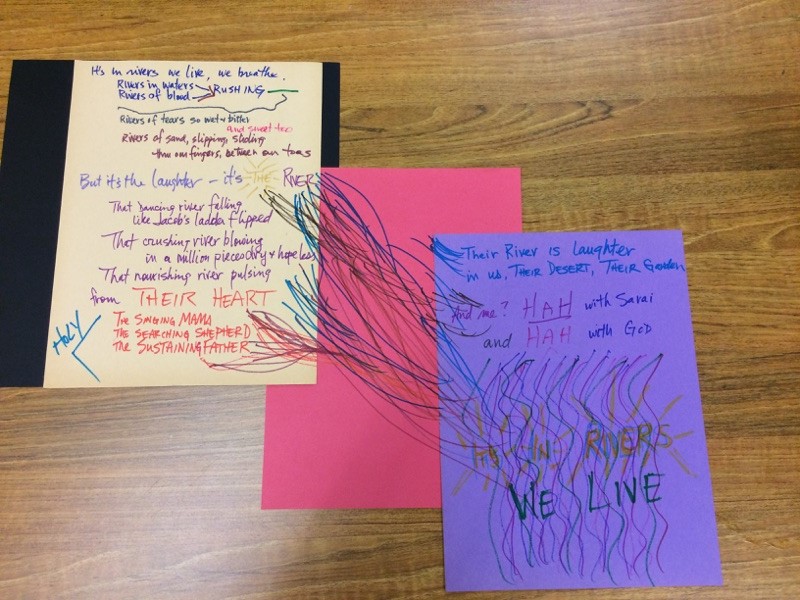 It's in rivers we live, we breathe.
Rivers in waters
Rivers of blood
RUSHING
Rivers of tears so wet & bitter
and sweet too
Rivers of sand, slipping, sliding
thru our fingers, between our toes
But it's the laughter - it's THE RIVER
That dancing river falling
like Jacob's ladder flipped
That crushing river blowing
in a million pieces dry & hopeless
That nourishing river pulsing
from THEIR HEART
THE SINGING MAMA
THE SEARCHING SHEPHERD
THE SUSTAINING FATHER
HOLY
Their River is Laughter
in us, THEIR DESERT, THEIR Garden
And me? HAH with Sarai
and HAH with GOD
It's IN RIVERS
WE LIVE